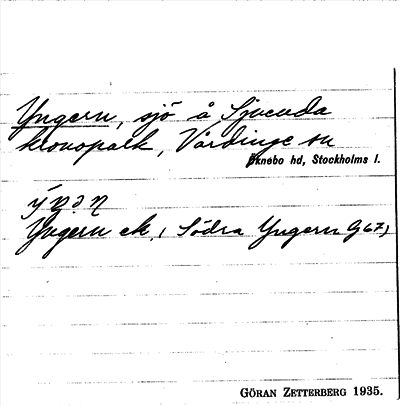 Yngern, sjö å Sjunda
kronopark, Vårdinge sn
Öknebo hd, Stockholms l.
ýŋən
Yngern ek. (Södra Yngern G67)
GÖRAN ZETTERBERG 1935.